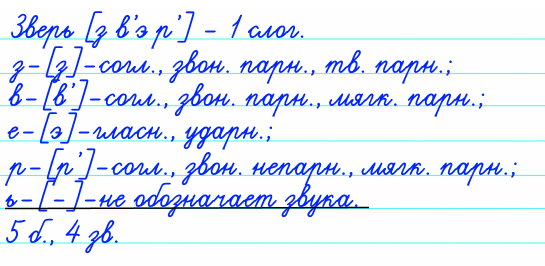 Зверь [з в'э р'] – 1 слог.
з–[з]–согл., звон. парн., тв. парн.;
в–[в']–согл., звон. парн., мягк. парн.;
е–[э]–гласн., ударн.;
р–[р']–согл., звон. непарн., мягк. парн.;
ь–[–]–не обозначает звука.
5 б., 4 зв.